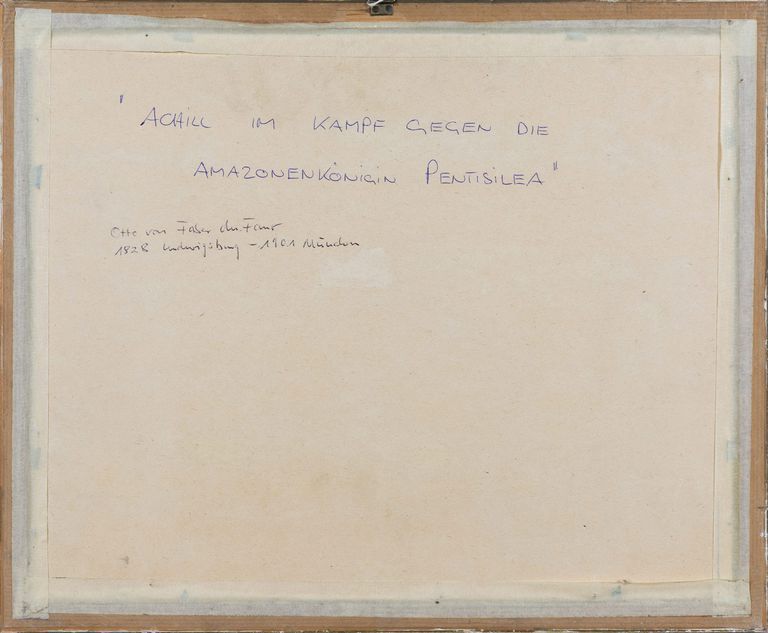 "ACHILL IM KAMPF GEGEN DIE
AMAZONENKÖNIGIN PENTISILEA"
Otto von Faber du Faur
1828 Ludwigsburg - 1901 München